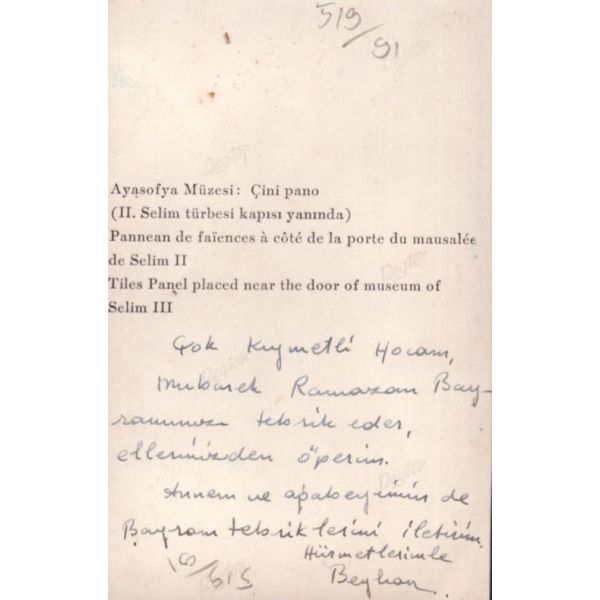 519/91
Ayasofya Müzesi: Çini pano
(II. Selim türbesi kapısı yanında)
Pannean de faïences à côté de la porte du mausalée
de Selim II
Tiles Panel placed near the door of museum of
Selim III
Çok Kıymetli Hocam,
Mubarek Ramazan Bay-
ramınızı tebrik eder,
ellerinizden öperim.
Annem ve ağabeyimin de
Bayram tebriklerini iletirim.
Hürmetlerimle
Beyhan